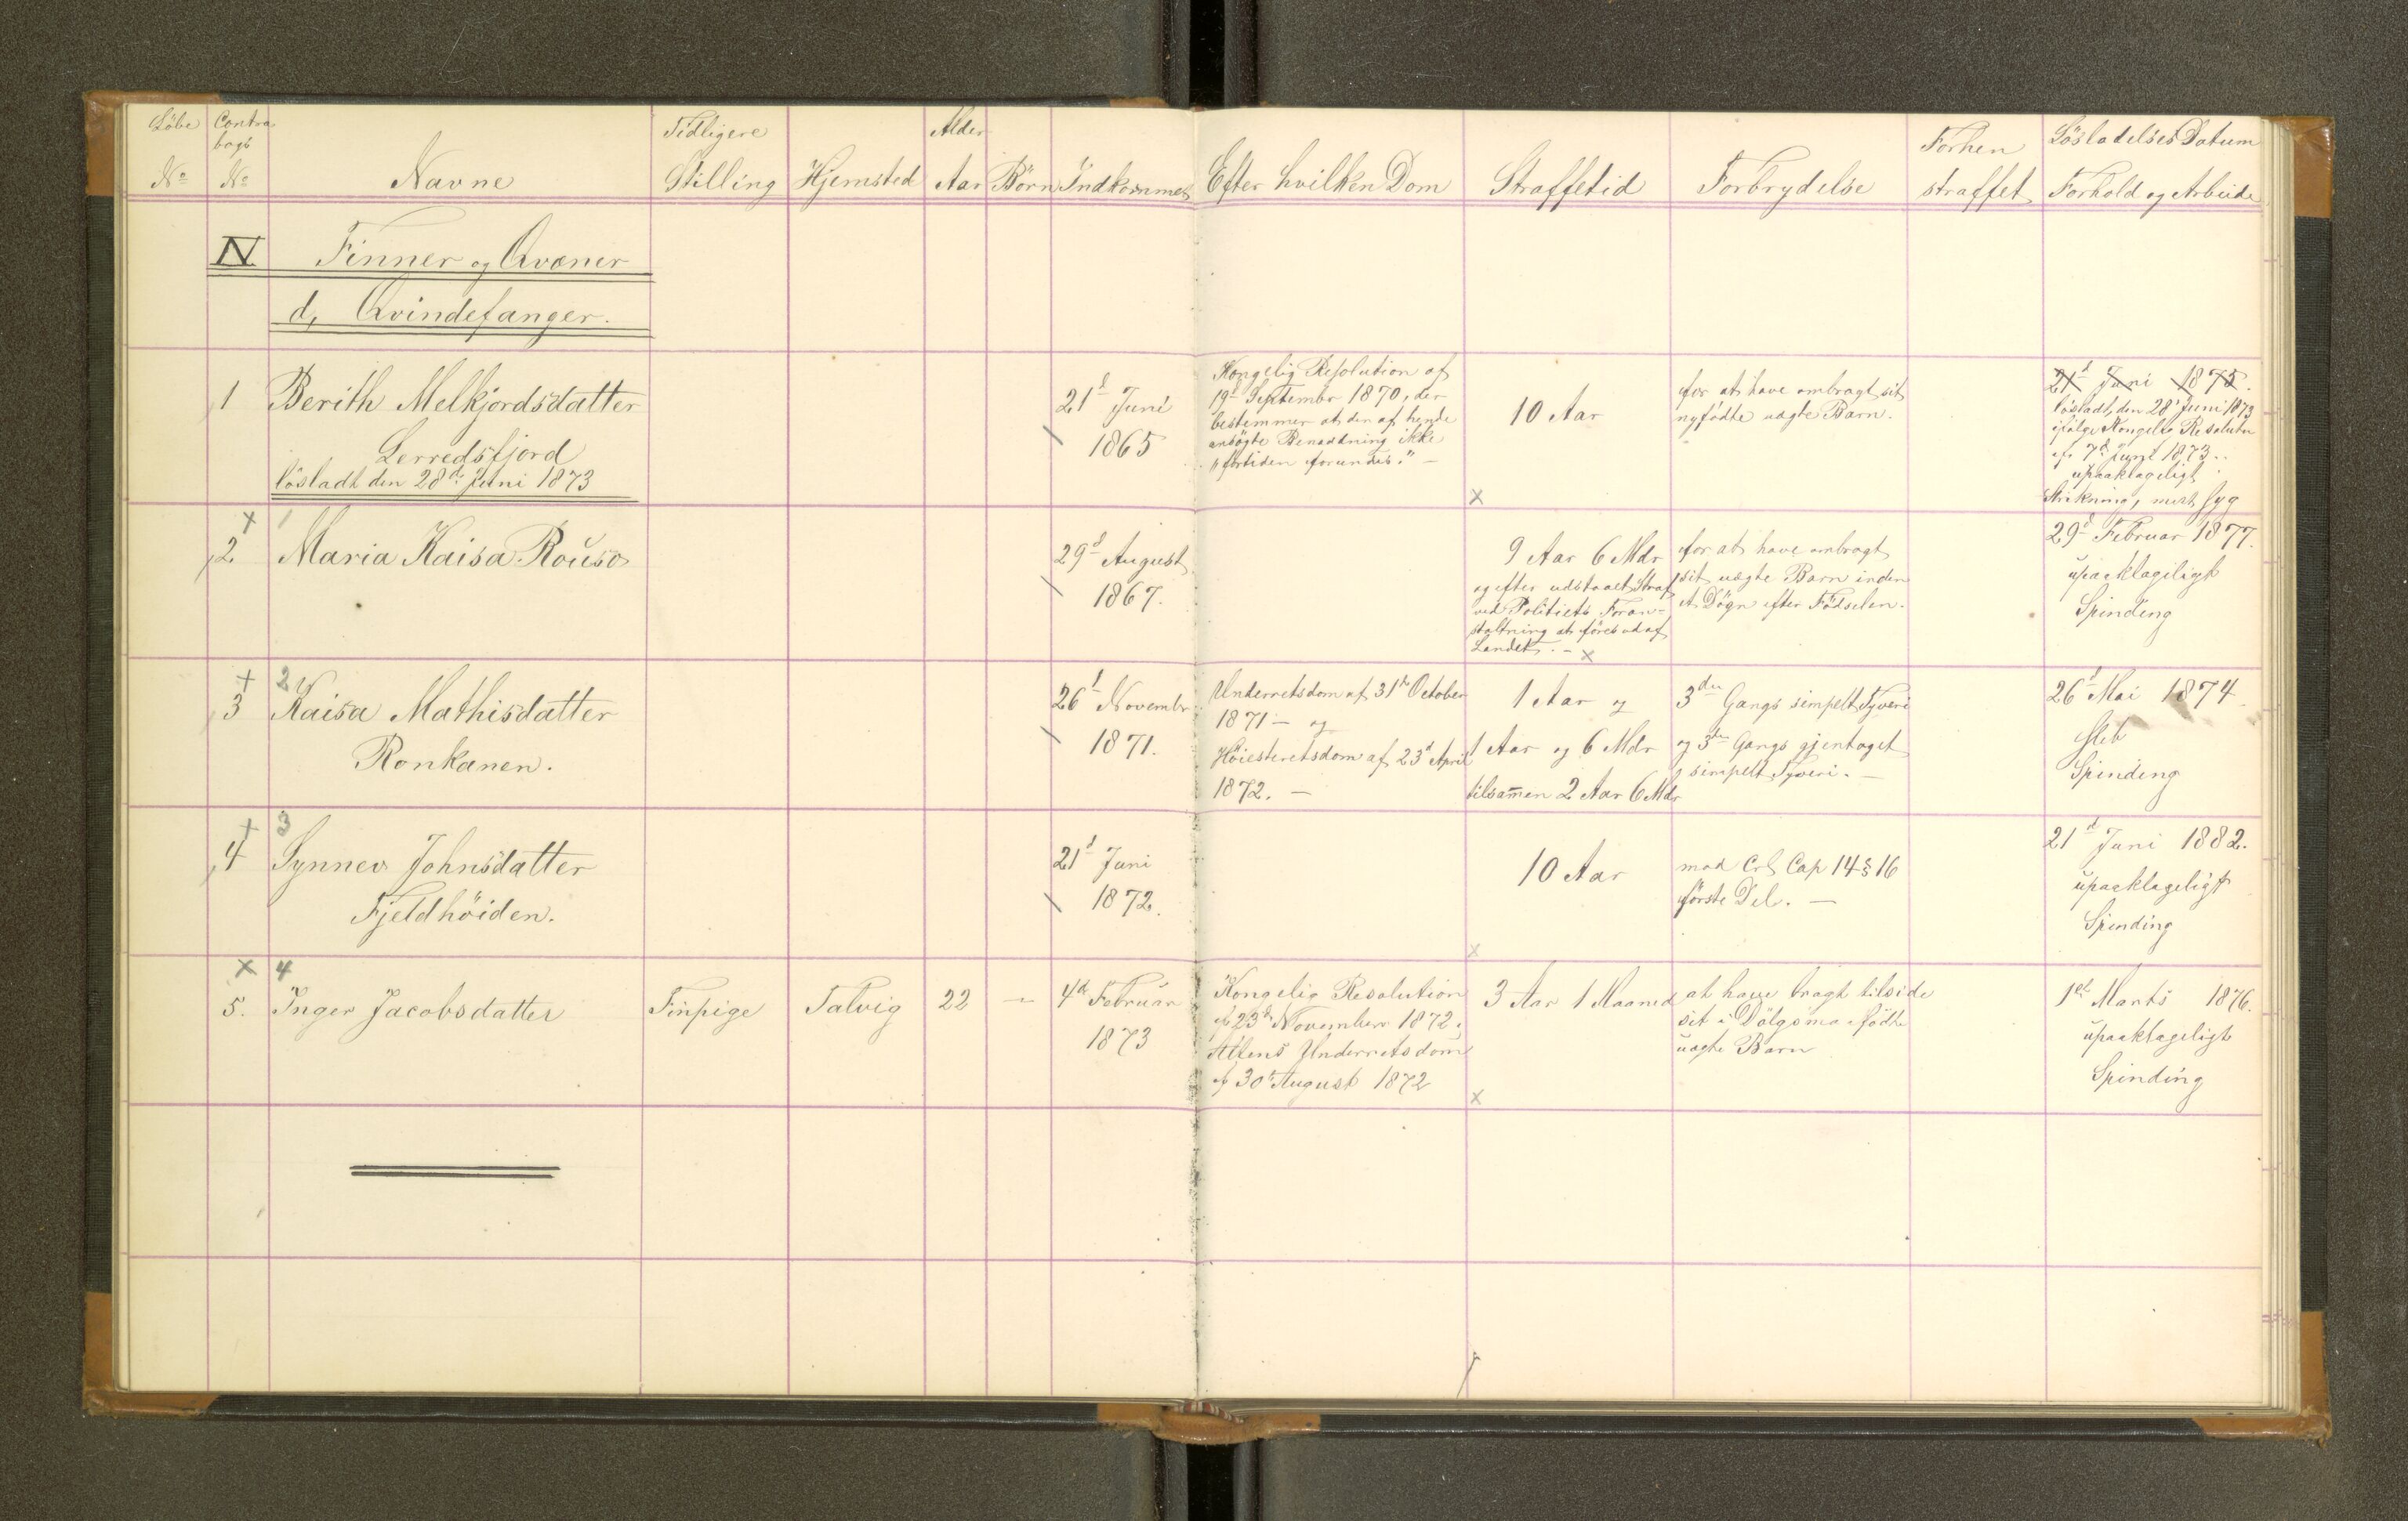 Löbe Contra Tidligere Alder Forhen Lösladelses Datum
bogs
No No Navne Stilling Hjemsted Aar Börn Indkommet Efter hvilken Dom Straffetid Forbrydelse straffet Forhold og Arbeide
N Finner og Qvæner
d, Qvindefanger.
1 Berith Melkjordsdatter
Lerredsfjord
lösladt den 28d Juni 1873
21d Juni
1865
Kongelig Resolution af
19d September 1870, der
bestemmer at den af hende
ansögte Benaadning ikke
"fortiden forundes." —
10 Aar
for at have ombragt sit
nyfödte uægte Barn.
21d Juni 1875.
lösladt, den 28d Juni 1873
ifölge Kongelig Resolution
af 7d Juni 1873.
upaaklageligt
Strikning, mest syg
×
+ 1
2 Maria Kaisa Rouso
29d August
1867.
9 Aar 6 Mdr
og efter udstaaet Straf
ved Politiets Foran-
staltning at föres ud af
Landet. — ×
for at have ombragt
sit uægte Barn inden
et Dögn efter Födselen.
29d Februar 1877.
upaaklageligt
Spinding
+ 2
3 Kaisa Mathisdatter
Ronkanen.
26d Novembr
1871.
Underretsdom af 31te October
1871 — og
Höiesteretsdom af 23d April
1872. —
1 Aar og
1 Aar og 6 Mdr
tilsamen 2 Aar 6 Mdr
3die Gangs simpelt Tyveri
og 3die Gangs gjentaget
simpelt Tyveri. —
26d Mai 1874.
slet
Spinding
+ 3
4 Synnev Johnsdatter
Fjeldhöiden.
21d Juni
1872.
10 Aar
mod Crl Cap 14 § 16
förste Del. —
21d Juni 1882.
upaaklageligt
Spinding
×
× 4
5. Inger Jacobsdatter Finpige Talvig 22 — 4d Februar
1873
Kongelig Resolution
af 23de November 1872.
Altens Underretsdom
af 30t August 1872
3 Aar 1 Maaned
at have bragt tilside
sit i Dölgsmaal födte
uægte Barn
1st Marts 1876.
upaaklageligt
Spinding
×